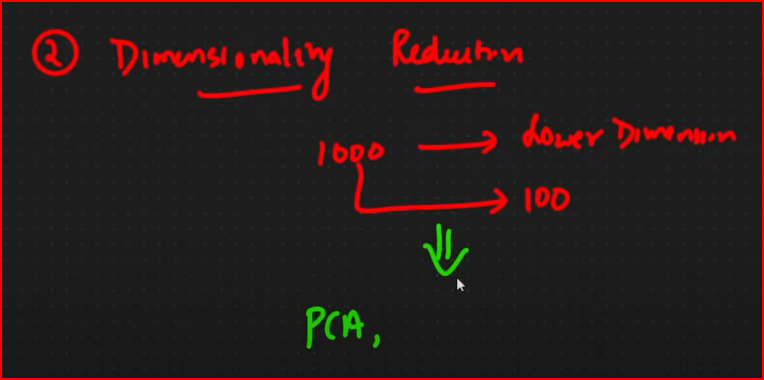 ② Dimensionality Reduction
1000 → Lower Dimension
→ 100
PCA,